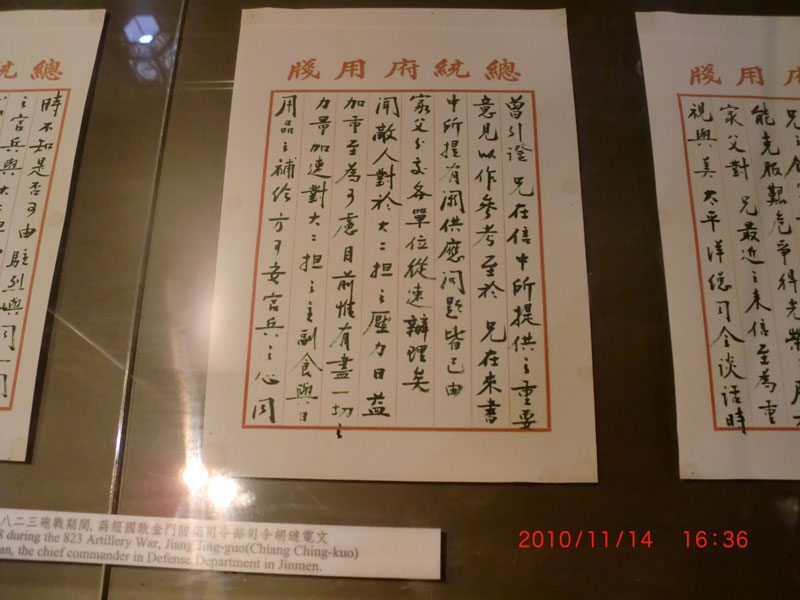 府用牋
能克服艱危爭得光榮
家父對 兄最近之來信至為重
視與美太平洋總司令談話時
總統府用牋
曾引證 兄在信中所提供之重要
意見以作參考至於 兄在來書
中所提有關供應問題皆已由
家父分交各單位從速辦理矣
聞敵人對於大二担之壓力日益
加重至為可慮目前惟有盡一切之
力量加速對大二担之主副食與日
用品之補給方可安官兵之心同
總統
時不知是否可由駐烈嶼同
之官兵與大
八二三砲戰期間,蔣經國致金門防衛司令部司令胡璉電文
8 during the 823 Artillery War, Jiang Jing-guo(Chiang Ching-kuo)
an, the chief commander in Defense Department in Jinmen.
2010/11/14 16:36